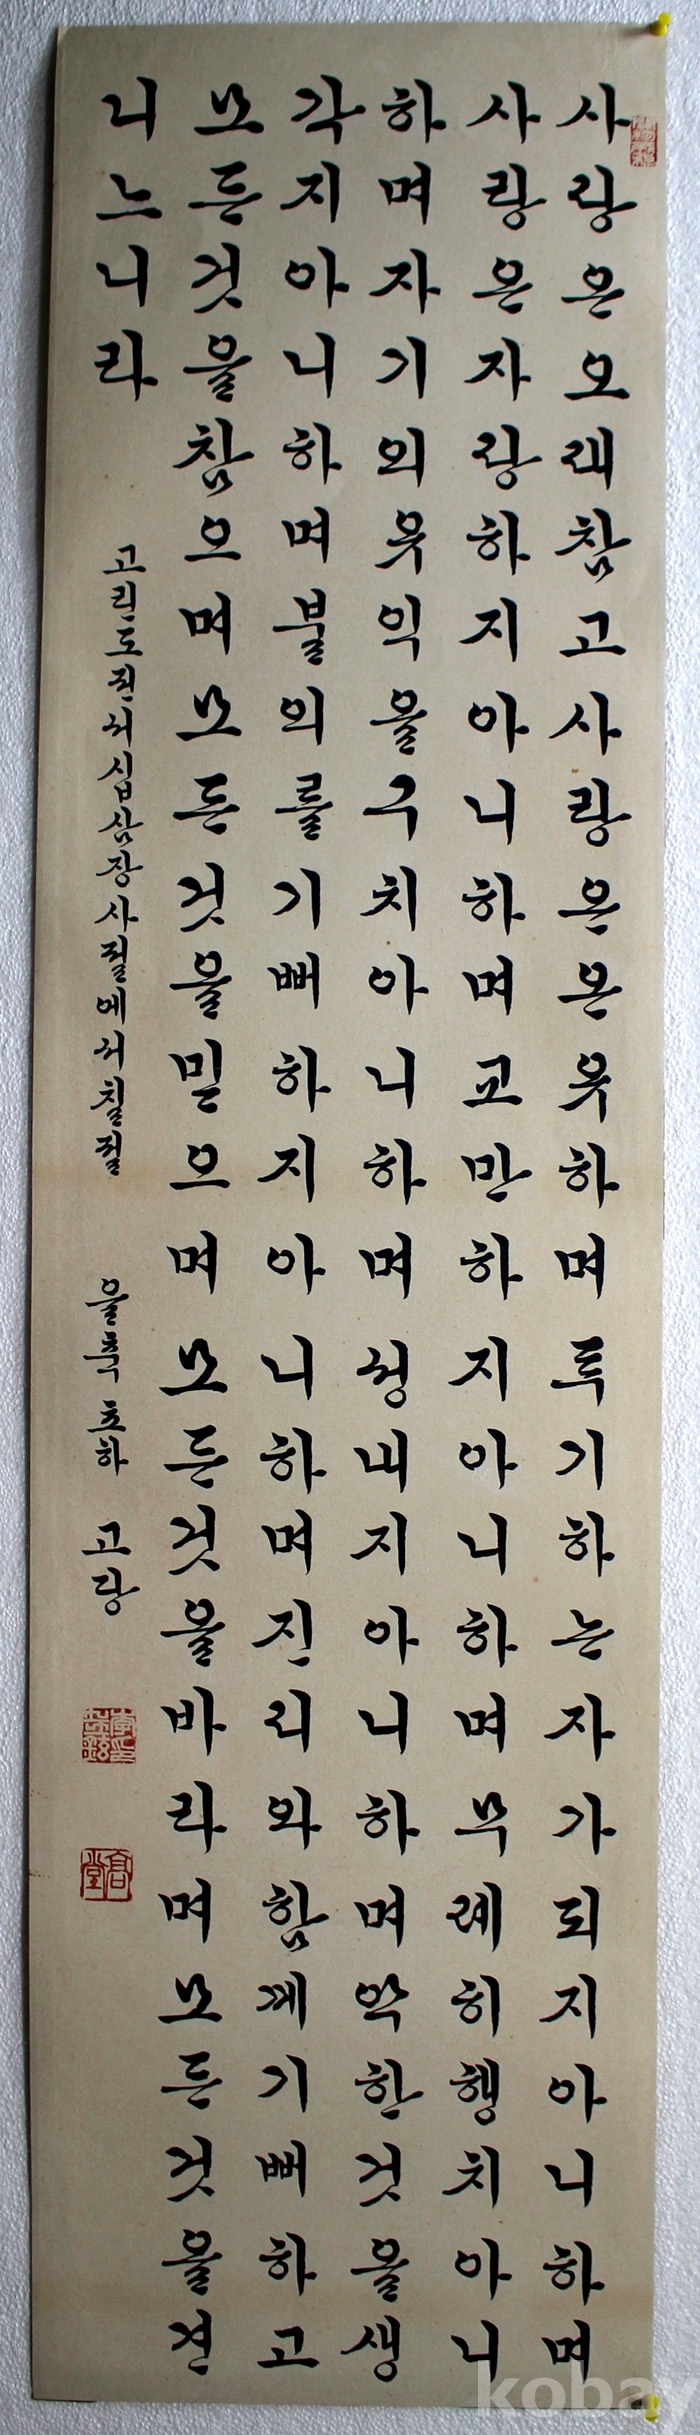 사랑은오래참고사랑은온유하며투기하는자가되지아니하며
사랑은자랑하지아니하며교만하지아니하며무례히행치아니
하며자기의유익을구치아니하며성내지아니하며악한것을생
각지아니하며불의를기뻐하지아니하며진리와함께기뻐하고
모든것을참으며모든것을믿으며모든것을바라며모든것을견
니느니라
고린도전서십삼장사절에서칠절 을축초하 고당
高堂
kobay